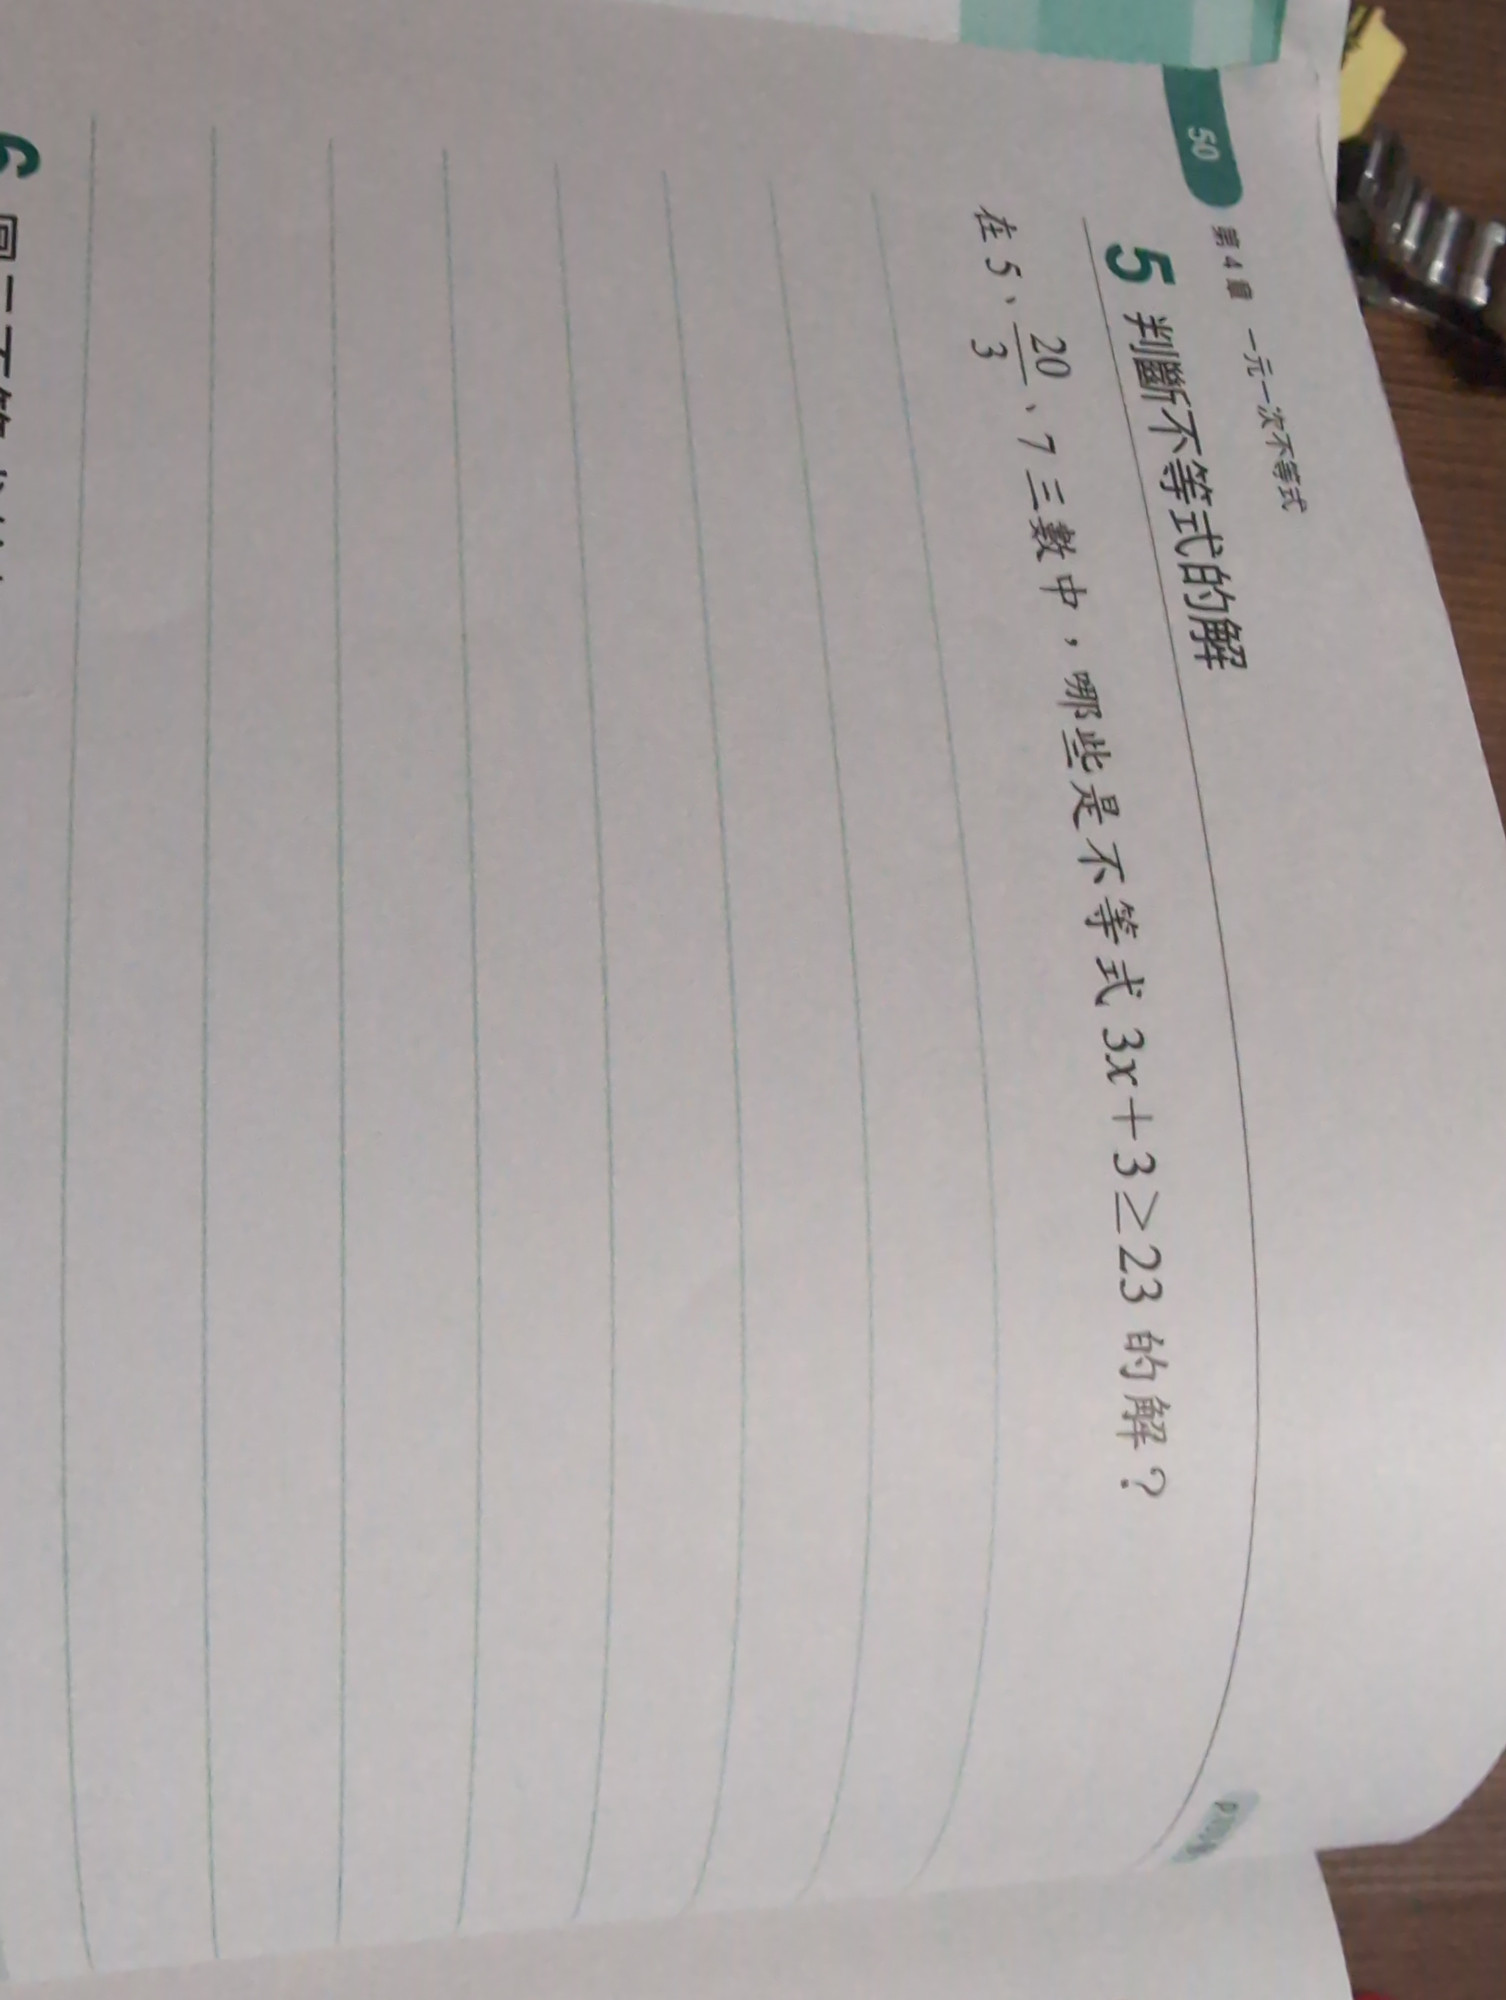 50 第4章 一元一次不等式
5 判斷不等式的解
在 5、20/3、7 三數中，哪些是不等式 3x＋3≥23 的解？
6